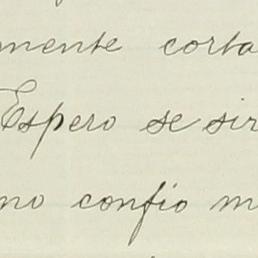 mente corta
Espero se sir
no confio m